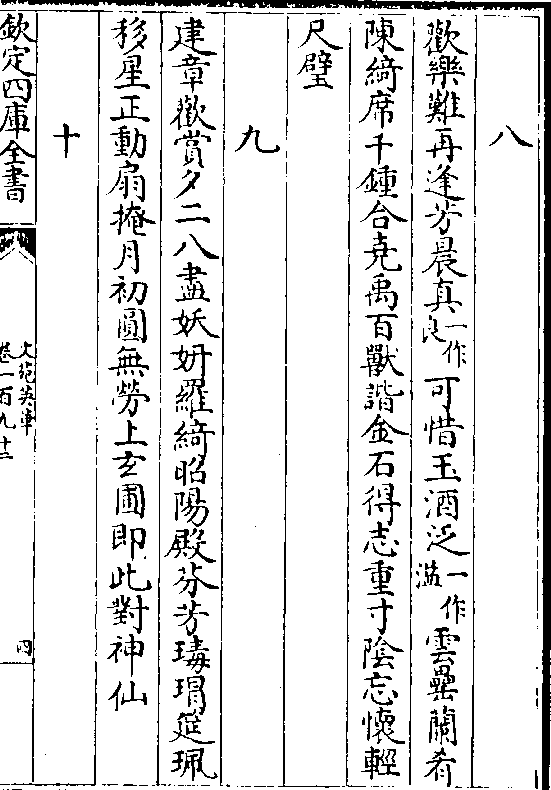 八
歡樂難再逢芳晨真一作良可惜玉酒泛一作溢雲罍蘭肴
陳綺席千鍾合堯禹百獸諧金石得志重寸陰忘懷輕
尺璧
九
建章歡賞夕二八盡妖妍羅綺昭陽殿芬芳瑇瑁筵珮
移星正動扇掩月初圓無勞上玄圃即此對神仙
十
欽定四庫全書
文苑英華
卷一百九十二
四